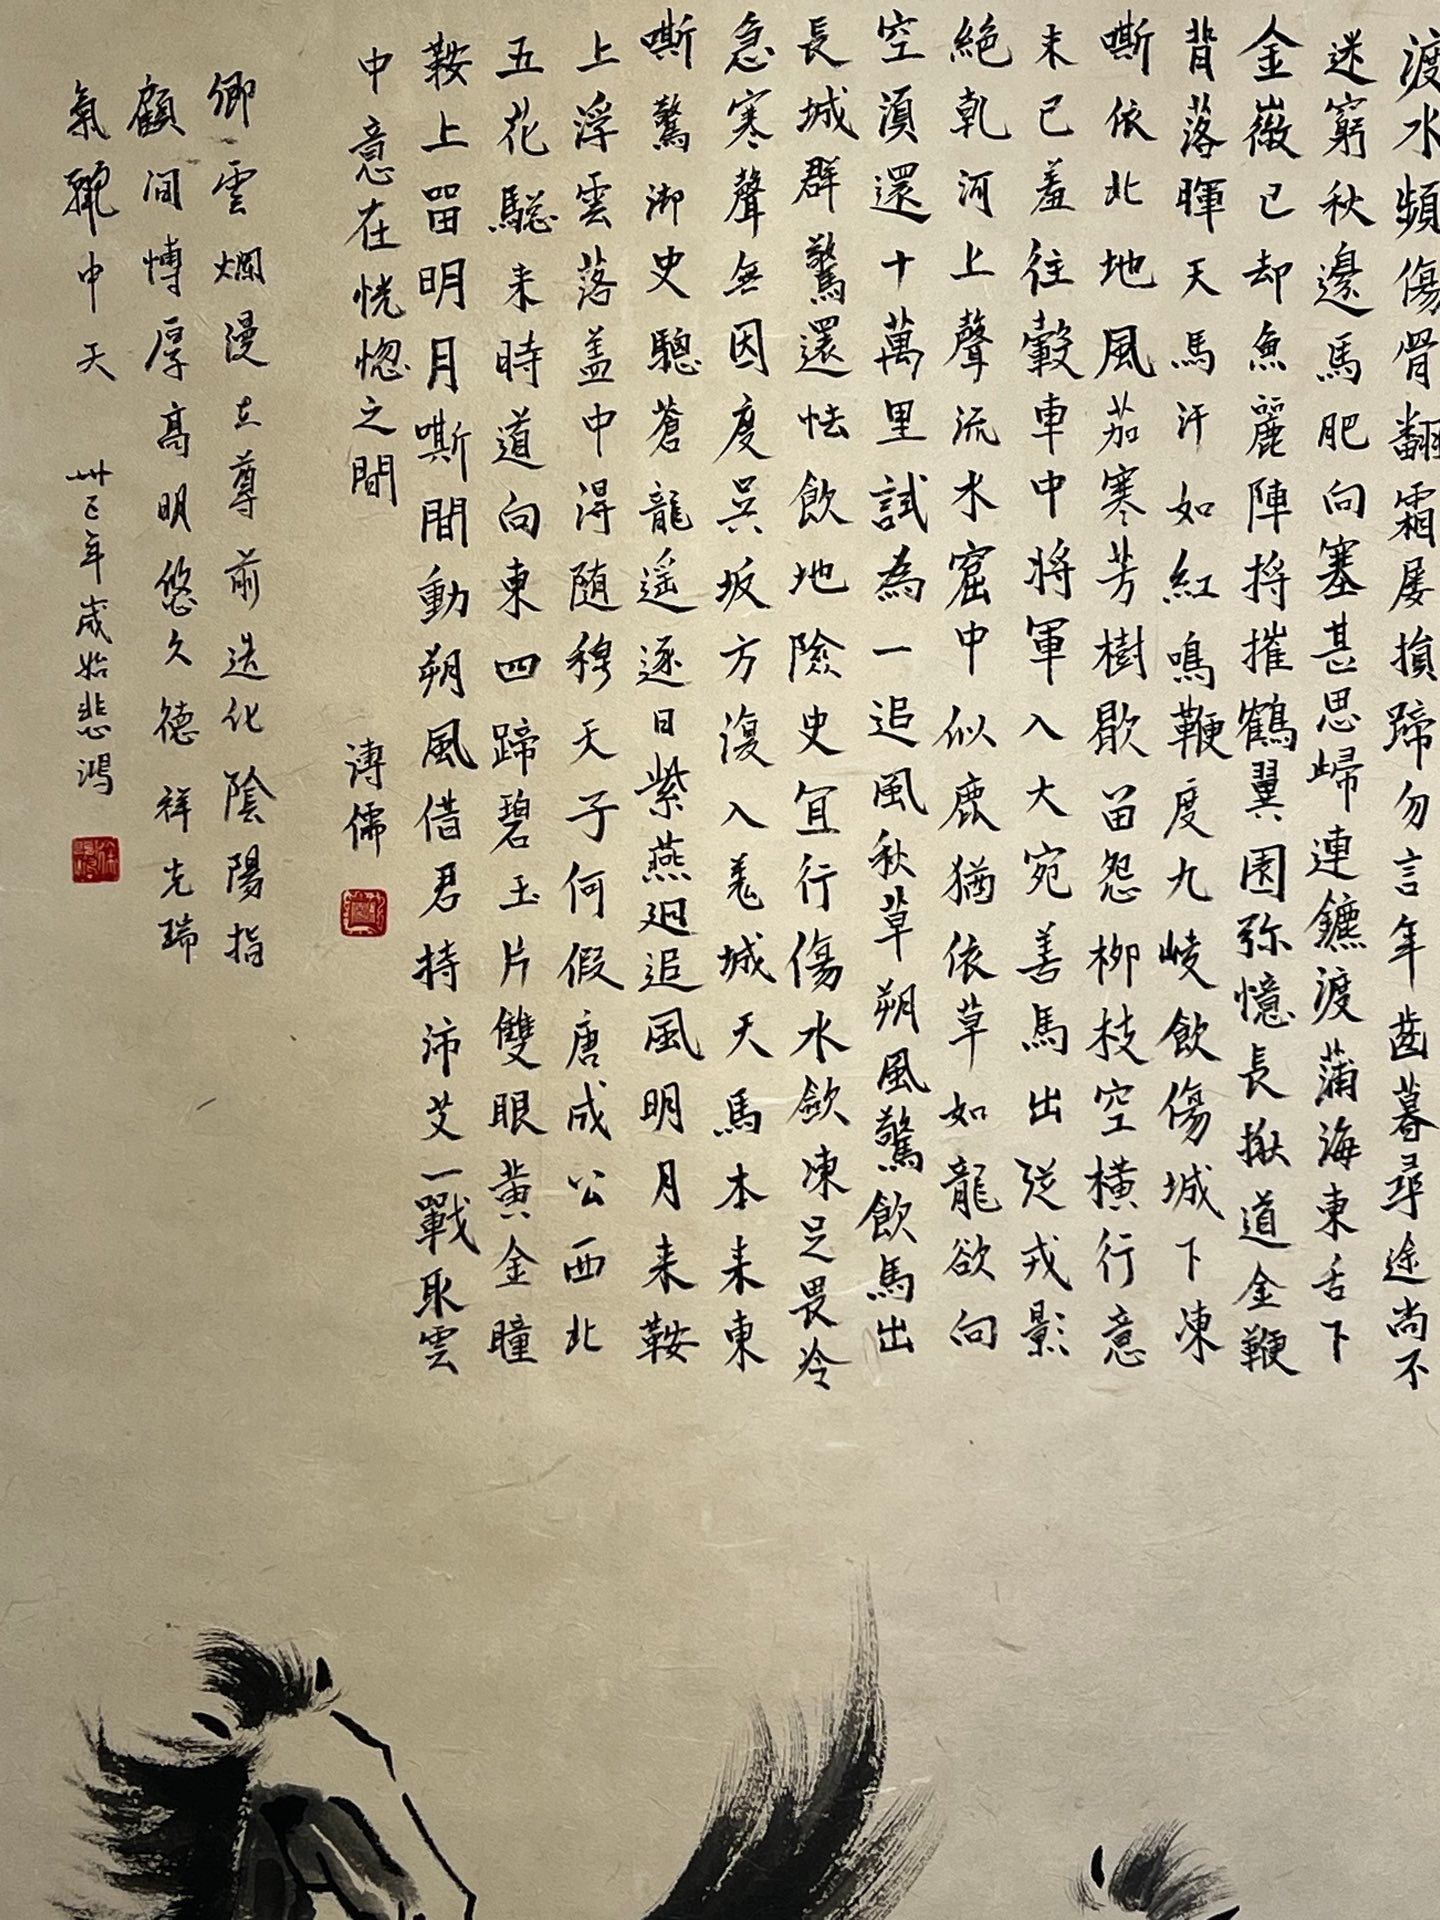 渡水頻傷骨翻霜屡損蹄勿言年齒暮尋途尚不
迷窮秋邊馬肥向塞甚思歸連鑣渡蒲海東舌下
金微已却魚麗陣将摧鶴翼圍弥憶長楸道金鞭
背落暉天馬汗如紅鳴鞭度九崚飲傷城下凍
嘶依北地風茄寒芳樹歇畄怨柳枝空橫行意
未已羞往轂車中將軍入大宛善馬出從戎影
絕乾河上聲流水窟中似鹿猶依草如龍欲向
空須還十萬里試為一追風秋草朔風驚飲馬出
長城群驚還怯飲地險史宜行傷水歛凍足畏冷
急寒聲無因度吳坂方復入羌城天馬本来東
嘶驚御史驄蒼龍遥逐日紫燕迴追風明月来鞍
上浮雲落盖中得随穆天子何假唐成公西北
五花驄来時道向東四蹄碧玉片雙眼黄金瞳
鞍上畄明月嘶間動朔風借君持沛艾一戰取雲
中意在恍惚之間
溥儒
卿雲爛漫立尊前造化陰陽指
顧间博厚高明悠久德祥光瑞
氣飄中天
卅年歲始悲鴻